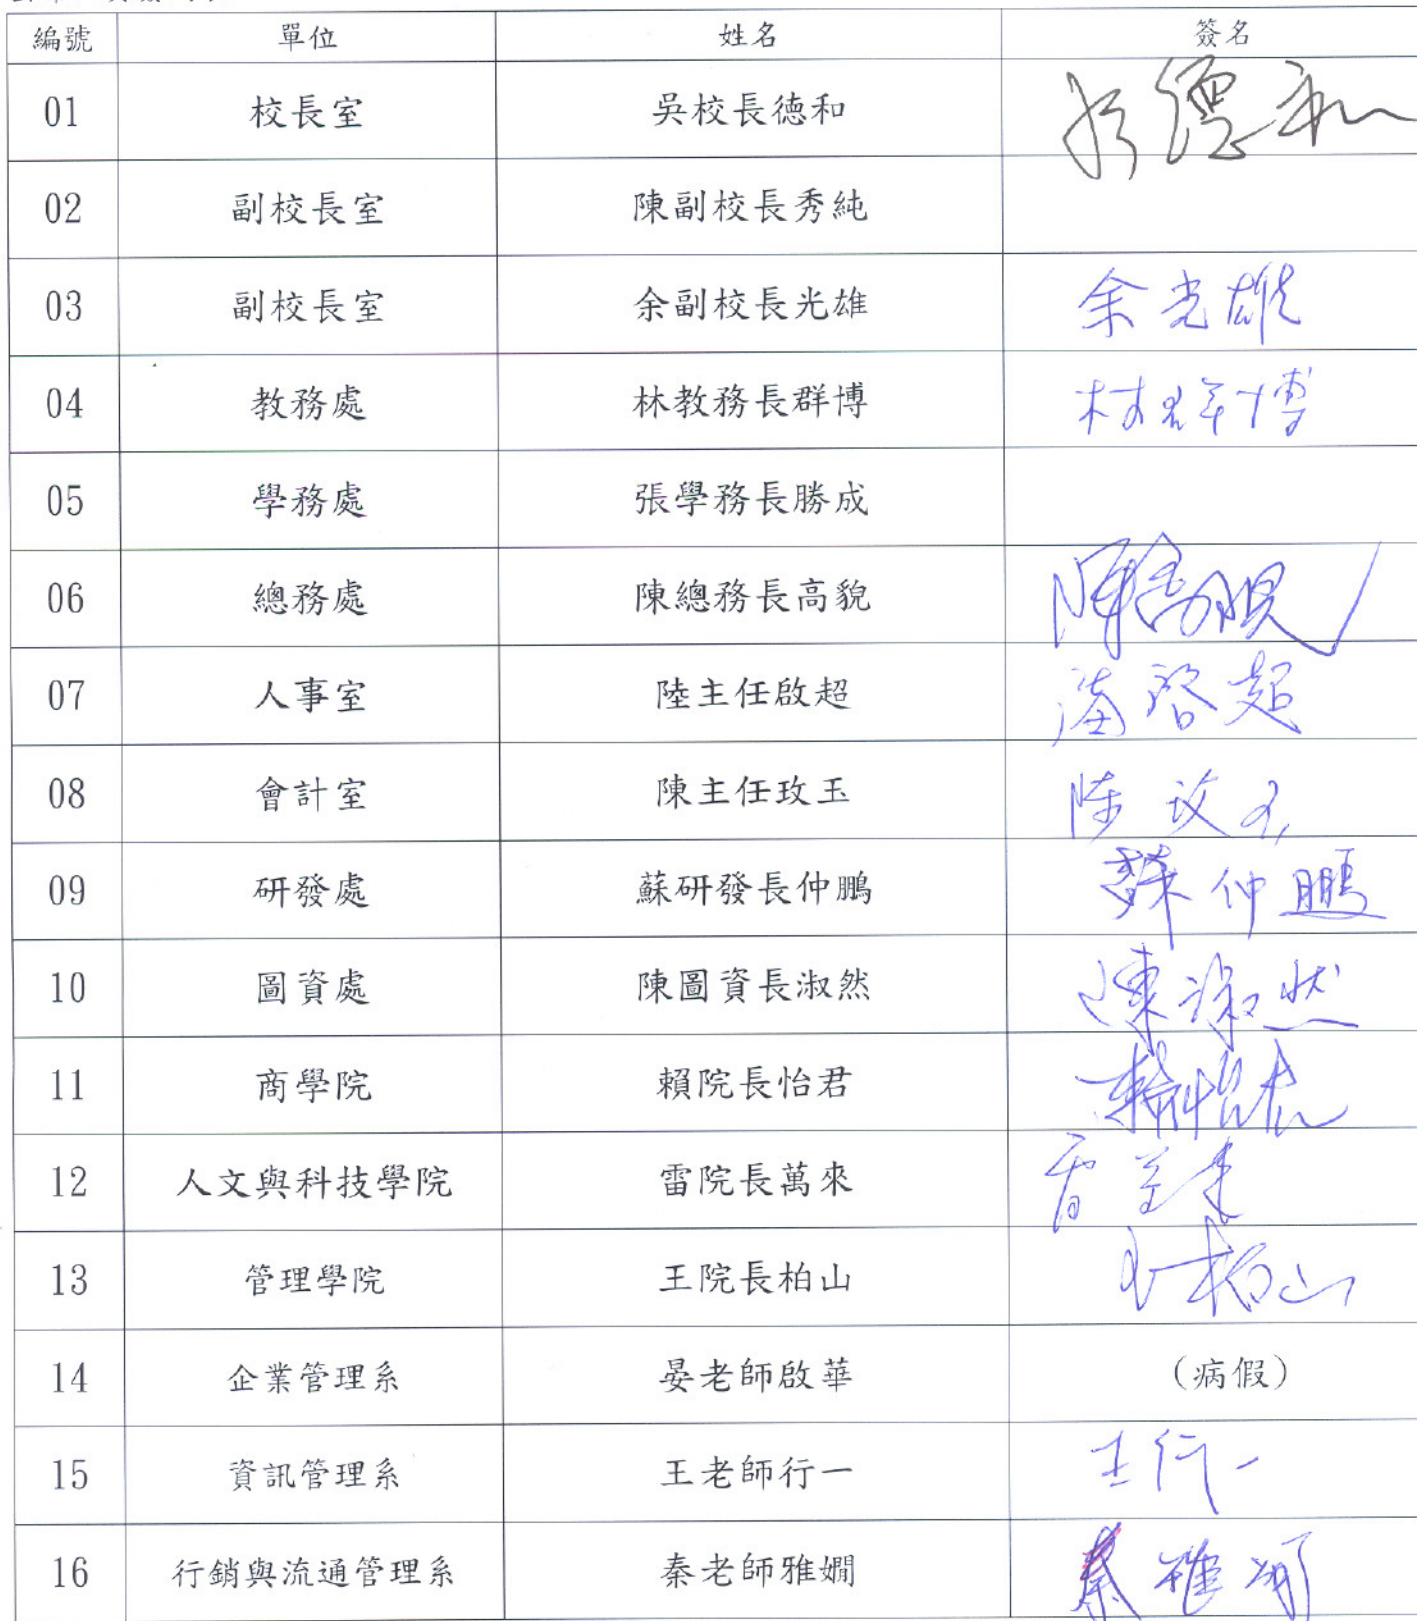 編號 單位 姓名 簽名
01 校長室 吳校長德和 吳德和
02 副校長室 陳副校長秀純
03 副校長室 余副校長光雄 余光雄
04 教務處 林教務長群博 林群博
05 學務處 張學務長勝成
06 總務處 陳總務長高貌 陳高貌
07 人事室 陸主任啟超
08 會計室 陳主任玫玉 陳玫玉
09 研發處 蘇研發長仲鵬 蘇仲鵬
10 圖資處 陳圖資長淑然 陳淑然
11 商學院 賴院長怡君 賴怡君
12 人文與科技學院 雷院長萬來 雷萬來
13 管理學院 王院長柏山 王柏山
14 企業管理系 晏老師啟華 (病假)
15 資訊管理系 王老師行一 王行一
16 行銷與流通管理系 秦老師雅嫺 秦雅嫺